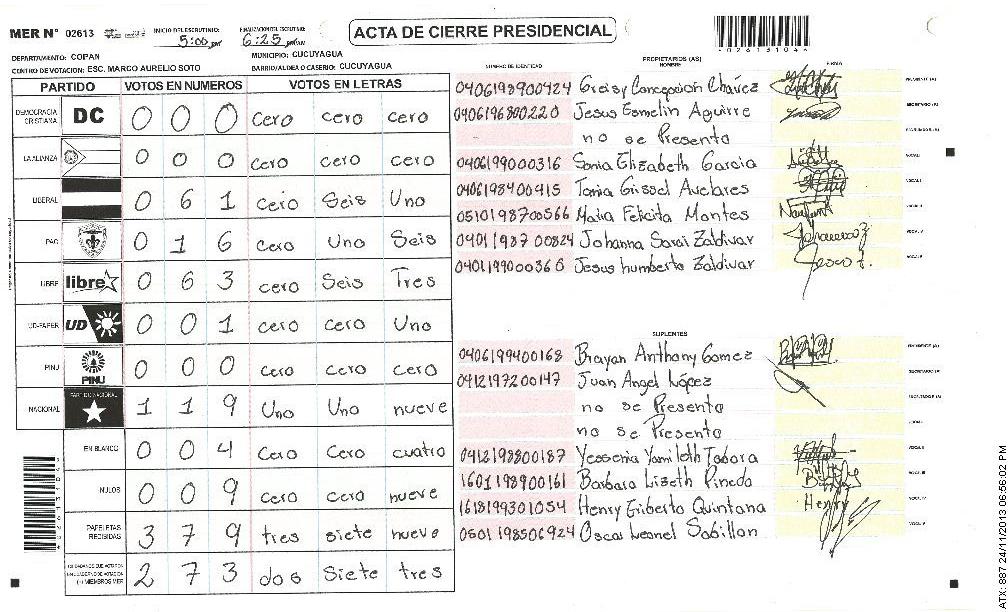 MER N° 02613 INICIO DE ESCRUTINIO: 5:00 pm FINALIZACION DEL ESCRUTINIO: 6:25 pm
ACTA DE CIERRE PRESIDENCIAL
026131044
DEPARTAMENTO: COPAN MUNICIPIO: CUCUYAGUA
CENTRO DE VOTACION: ESC. MARCO AURELIO SOTO BARRIO/ALDEA O CASERIO: CUCUYAGUA
PARTIDO VOTOS EN NUMEROS VOTOS EN LETRAS
DEMOCRACIA CRISTIANA DC 0 0 0 cero cero cero
LA ALIANZA 0 0 0 cero cero cero
LIBERAL 0 6 1 cero Seis Uno
PAC 0 1 6 cero Uno Seis
LIBRE libre 0 6 3 cero Seis Tres
UD-FAPER UD 0 0 1 cero cero Uno
PINU PINU 0 0 0 cero cero cero
NACIONAL PARTIDO NACIONAL 1 1 9 Uno Uno nueve
EN BLANCO 0 0 4 Cero Cero cuatro
NULOS 0 0 9 cero cero nueve
PAPELETAS RECIBIDAS 3 7 9 tres siete nueve
2 7 3 dos Siete tres
NUMERO DE IDENTIDAD PROPIETARIOS (AS) NOMBRE FIRMA
0406198900424 Greisy Concepcion Chávez PRESIDENTE (A)
0406196800220 Jesus Esmelin Aguirre SECRETARIO (A)
no se Presento
0406199000316 Sonia Elizabeth Garcia VOCAL I
0406198400415 Tania Grissel Avelares
0510198700566 Maria Felicita Montes
0401198700824 Johanna Sarai Zaldivar
0401199000366 Jesus humberto Zaldivar
SUPLENTES
0406199400168 Brayan Anthony Gomez PRESIDENTE (A)
0412197200147 Juan Angel López SECRETARIO (A)
no se Presento
no se Presento
0412198800187 Yessenia Yamileth Tabora
1601198900161 Barbara Lizeth Pineda
1618199301054 Henry Eriberto Quintana Henry
0501198506924 Oscar Leonel Sabillon
ATX: 887 24/11/2013 06:56:02 PM